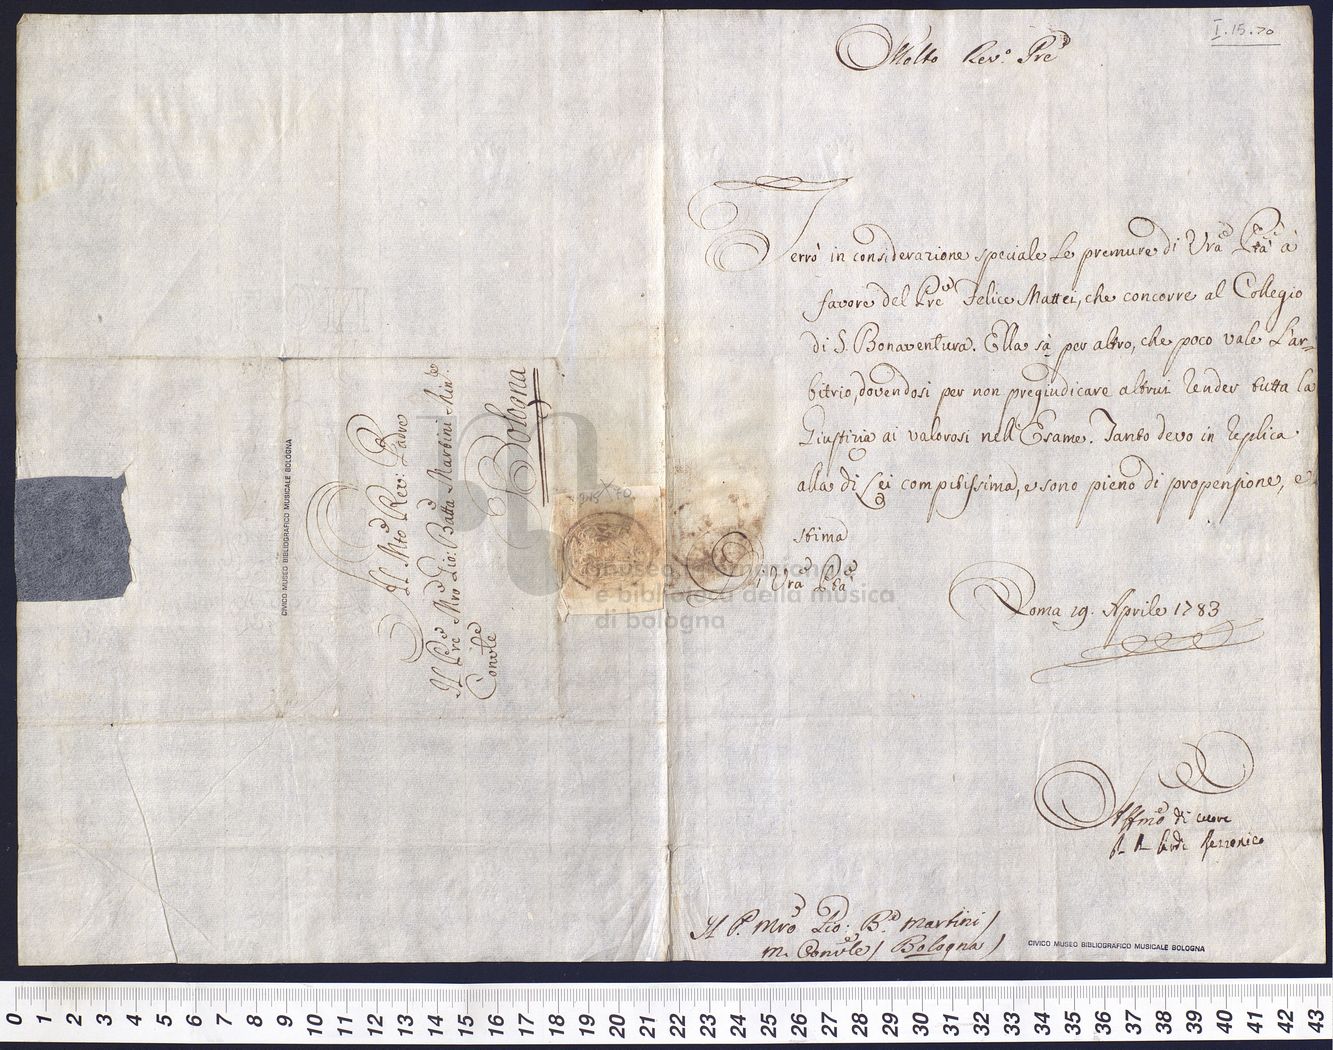 I.15.70
Molto Rev.º Pre
Terrò in considerazione speciale le premure di Vra Ptà à
favore del Pre Felice Mattei, che concorre al Collegio
di S. Bonaventura. Ella sà per altro, che poco vale l'ar-
bitrio, dovendosi per non pregiudicare altrui render tutta la
Giustizia ai valorosi nell'Esame. Tanto devo in replica
alla di Lei compitissima, e sono pieno di propensione, e
stima
Di Vra Ptà
Roma 19. Aprile 1783
Affmo di cuore
Rezzonico
Il P. Mro Gio: Ba Martini /
m. Convle / Bologna /
CIVICO MUSEO BIBLIOGRAFICO MUSICALE BOLOGNA
Al Mto Rev: Padre
Il Pre Mro Gio: Batta Martini Min:
Convle
Bologna
CIVICO MUSEO BIBLIOGRAFICO MUSICALE BOLOGNA
museo internazionale
e biblioteca della musica
di bologna
0 1 2 3 4 5 6 7 8 9 10 11 12 13 14 15 16 17 18 19 20 21 22 23 24 25 26 27 28 29 30 31 32 33 34 35 36 37 38 39 40 41 42 43